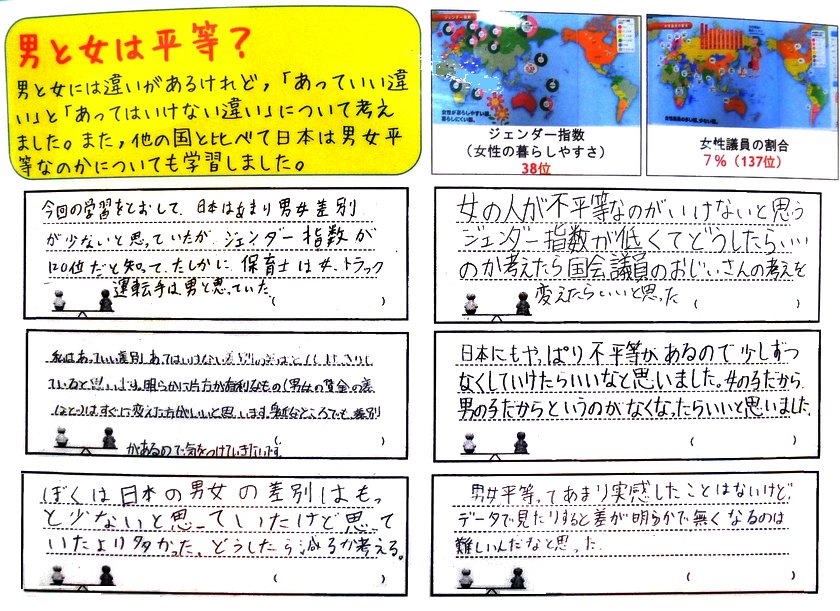 男と女は平等？
男と女には違いがあるけれど，「あっていい違
い」と「あってはいけない違い」について考え
ました。また，他の国と比べて日本は男女平
等なのかについても学習しました。
ジェンダー指数
（女性の暮らしやすさ）
38位
女性議員の割合
7％（137位）
今回の学習をとおして、日本はあまり男女差別
が少ないと思っていたが ジェンダー指数が
120位だと知って、たしかに 保育士は女、トラック
運転手は男と思っていた
（　　　）
女の人が不平等なのがいけないと思う
ジェンダー指数が低くてどうしたらいい
のか考えたら国会議員のおじいさんの考えを
変えたらいいと思った
（　　　）
私はあっていい差別 あってはいけない
ていると思います。明らかに片方が有利なもの(男女の賃金の差
など)はすぐに変えた方がいいと思います。身近なところでも差別
があるので気をつけていきたいです。
（　　　）
日本にもやっぱり不平等があるので少しずつ
なくしていけたらいいなと思いました。女の子だから
男の子だからというのがなくなったらいいと思いました。
（　　　）
ぼくは日本の男女の差別はもっ
と少ないと思っていたけど思って
いたより多かった、どうしたら減るか考える。
（　　　）
男女平等ってあまり実感したことはないけど、
データで見たりすると差が明らかで無くなるのは
難しいんだなと思った
（　　　）